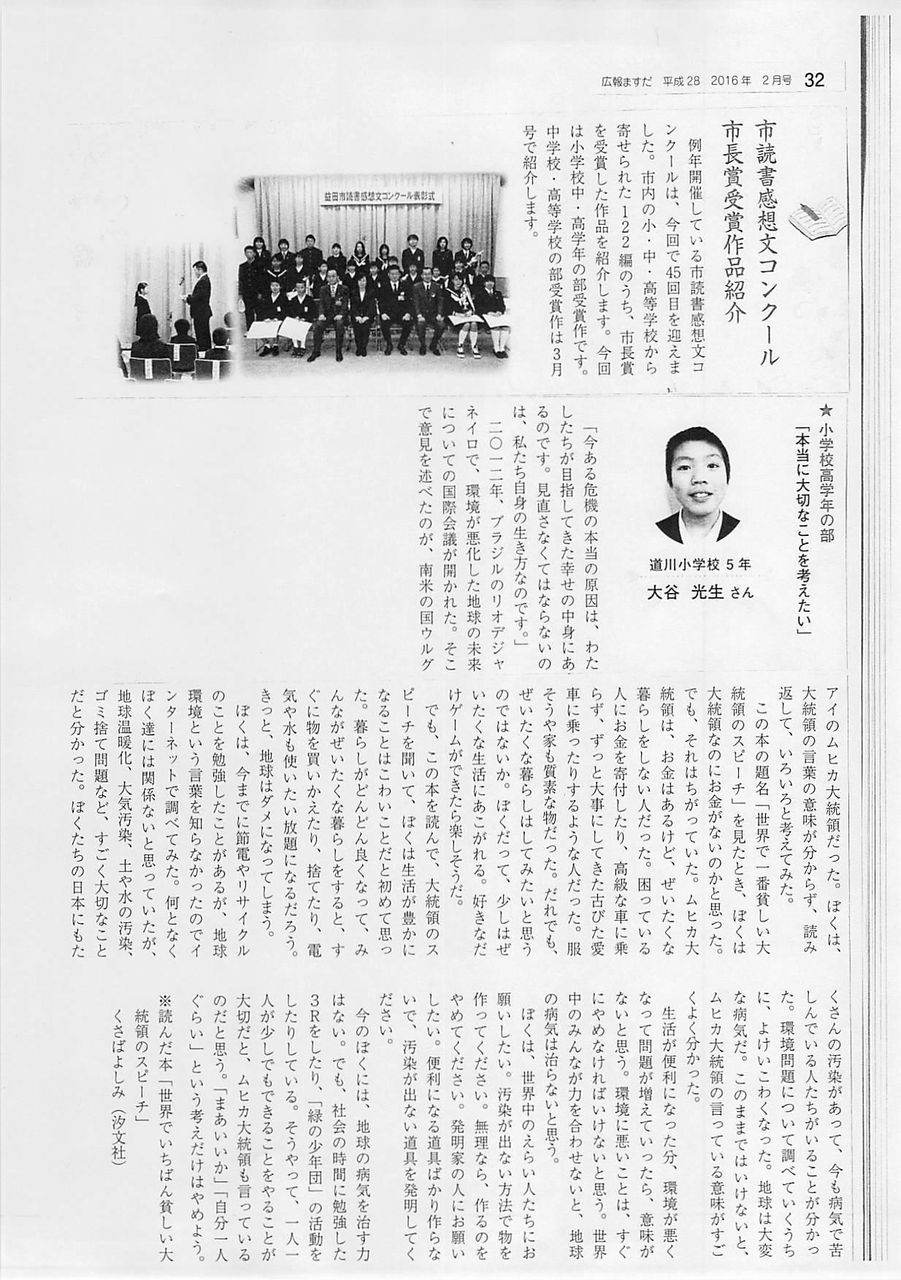 広報ますだ 平成28 2016年 2月号 32
市読書感想文コンクール
市長賞受賞作品紹介
例年開催している市読書感想文コ
ンクールは、今回で45回目を迎えま
した。市内の小・中・高等学校から
寄せられた122編のうち、市長賞
を受賞した作品を紹介します。今回
は小学校中・高学年の部受賞作です。
中学校・高等学校の部受賞作は3月
号で紹介します。
益田市読書感想文コンクール表彰式
★小学校高学年の部
「本当に大切なことを考えたい」
道川小学校5年
大谷 光生さん
「今ある危機の本当の原因は、わた
したちが目指してきた幸せの中身にあ
るのです。見直さなくてはならないの
は、私たち自身の生き方なのです。」
二〇一二年、ブラジルのリオデジャ
ネイロで、環境が悪化した地球の未来
についての国際会議が開かれた。そこ
で意見を述べたのが、南米の国ウルグ
アイのムヒカ大統領だった。ぼくは、
大統領の言葉の意味が分からず、読み
返して、いろいろと考えてみた。
この本の題名「世界で一番貧しい大
統領のスピーチ」を見たとき、ぼくは
大統領なのにお金がないのかと思った。
でも、それはちがっていた。ムヒカ大
統領は、お金はあるけど、ぜいたくな
暮らしをしない人だった。困っている
人にお金を寄付したり、高級な車に乗
らず、ずっと大事にしてきた古びた愛
車に乗ったりするような人だった。服
そうや家も質素な物だった。だれでも、
ぜいたくな暮らしはしてみたいと思う
のではないか。ぼくだって、少しはぜ
いたくな生活にあこがれる。好きなだ
けゲームができたら楽しそうだ。
でも、この本を読んで、大統領のス
ピーチを聞いて、ぼくは生活が豊かに
なることはこわいことだと初めて思っ
た。暮らしがどんどん良くなって、み
んながぜいたくな暮らしをすると、す
ぐに物を買いかえたり、捨てたり、電
気や水も使いたい放題になるだろう。
きっと、地球はダメになってしまう。
ぼくは、今までに節電やリサイクル
のことを勉強したことがあるが、地球
環境という言葉を知らなかったのでイ
ンターネットで調べてみた。何となく
ぼく達には関係ないと思っていたが、
地球温暖化、大気汚染、土や水の汚染、
ゴミ捨て問題など、すごく大切なこと
だと分かった。ぼくたちの日本にもた
くさんの汚染があって、今も病気で苦
しんでいる人たちがいることが分かっ
た。環境問題について調べていくうち
に、よけいこわくなった。地球は大変
な病気だ。このままではいけないと、
ムヒカ大統領の言っている意味がすご
くよく分かった。
生活が便利になった分、環境が悪く
なって問題が増えていったら、意味が
ないと思う。環境に悪いことは、すぐ
にやめなければいけないと思う。世界
中のみんなが力を合わせないと、地球
の病気は治らないと思う。
ぼくは、世界中のえらい人たちにお
願いしたい。汚染が出ない方法で物を
作ってください。無理なら、作るのを
やめてください。発明家の人にお願い
したい。便利になる道具ばかり作らな
いで、汚染が出ない道具を発明してく
ださい。
今のぼくには、地球の病気を治す力
はない。でも、社会の時間に勉強した
3Rをしたり、「緑の少年団」の活動を
したりしている。そうやって、一人一
人が少しでもできることをやることが
大切だと、ムヒカ大統領も言っている
のだと思う。「まあいいか」「自分一人
ぐらい」という考えだけはやめよう。
※読んだ本「世界でいちばん貧しい大
統領のスピーチ」
くさばよしみ(汐文社)